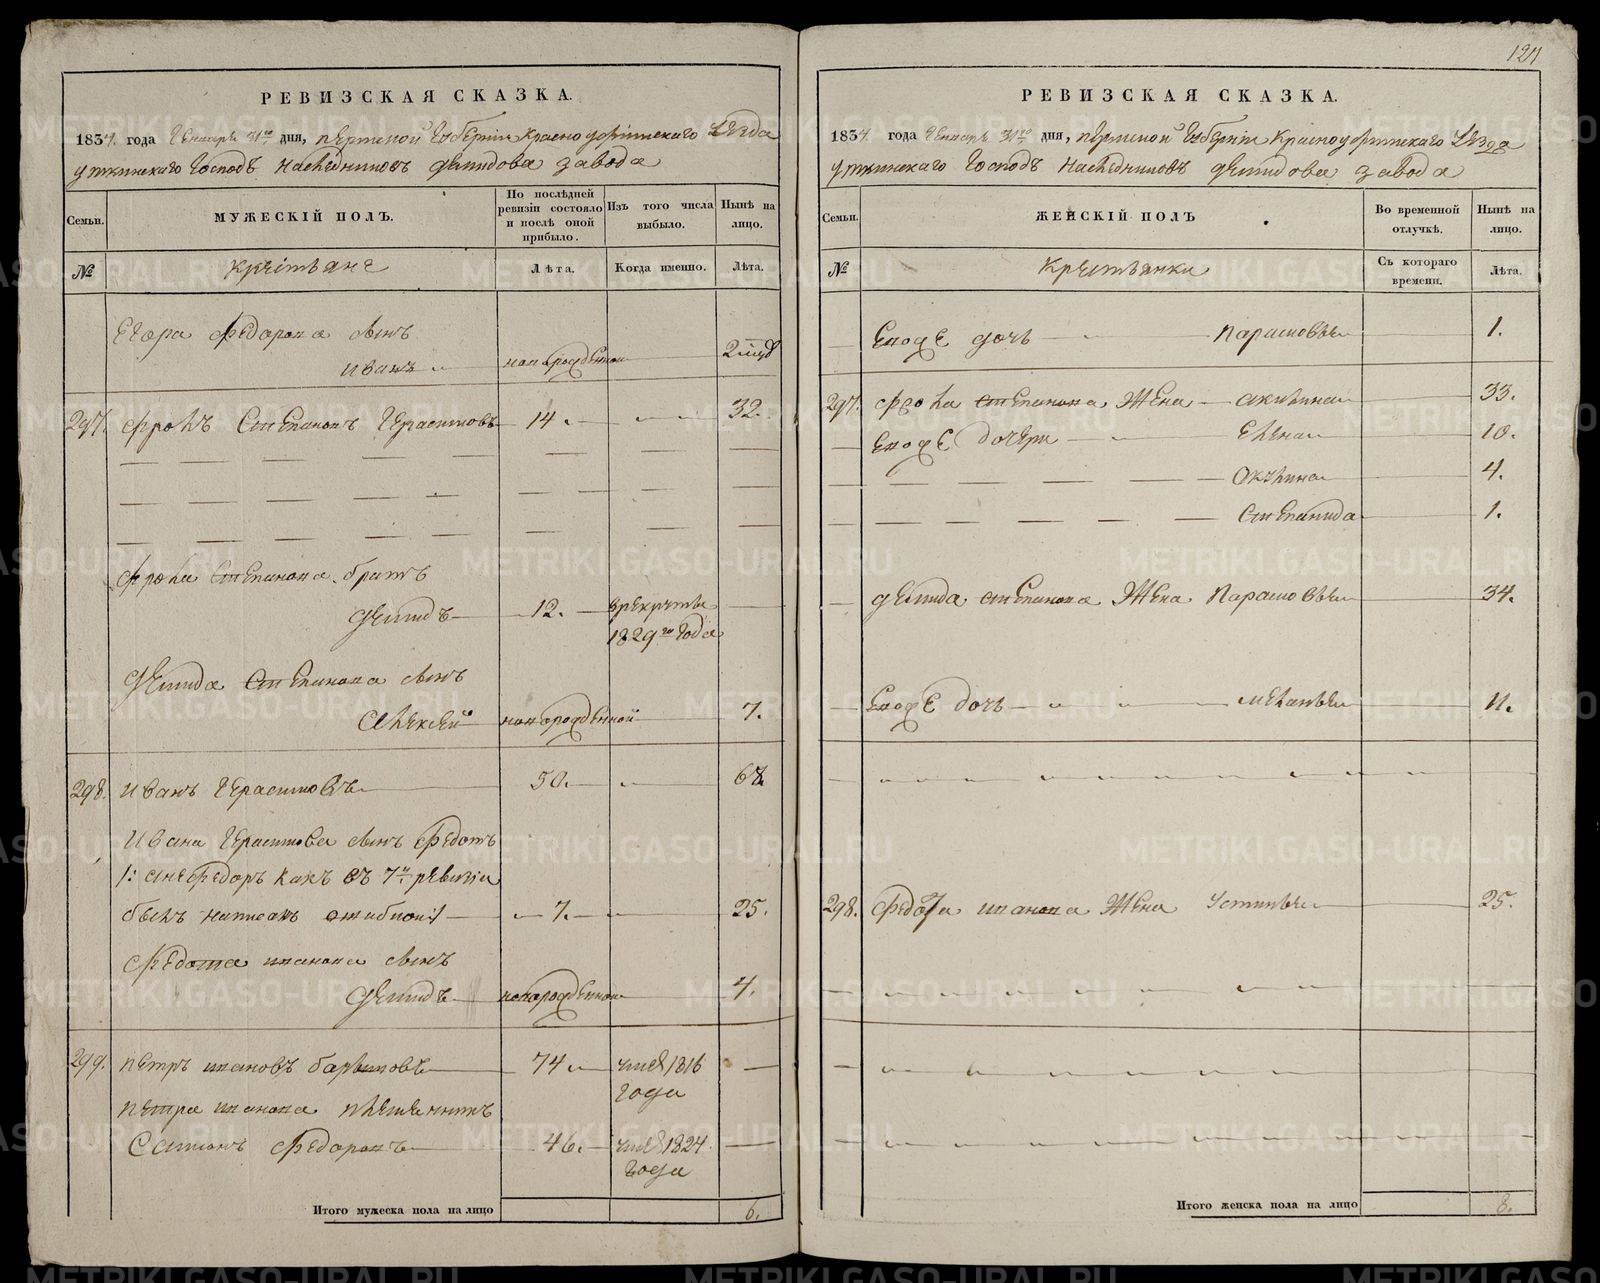 РЕВИЗСКАЯ СКАЗКА.
1834. года Генваря 31го дня, пермской Губернiи Красноуфимскаго Уезда
уткинскаго Господъ наследниковъ демидова завода
Семьи.
МУЖЕСКIЙ ПОЛЪ.
По послѣдней ревизiи состояло и послѣ оной прибыло.
Изъ того числа выбыло.
Нынѣ на лицо.
№
Крестьяне
Лѣта.
Когда именно.
Лѣта.
Егора федорова сынъ
иванъ новорожденной 2 мцъ
297. фролъ Степановъ Герасимовъ 14. 32.
фрола Степанова братъ
демидъ 12. врекруты
1829го Года
демида Степанова сынъ
Алексей новорожденной 7.
298. иванъ Герасимовъ 50. 68.
Ивана Герасимова сынъ Федотъ
/: анефедоръ какъ въ 7й ревизiи
былъ написанъ ошибкой:/ 7. 25.
Федота иванова сынъ
демидъ новорожденной 4.
299. петръ ивановъ барышовъ 74 1816
Года
петра иванова племенникъ
Самсонъ Федоровъ 46. 1824
Года
Итого мужеска пола на лицо 6.
124
РЕВИЗСКАЯ СКАЗКА.
1834. года Генваря 31го дня, пермской Губернiи Красноуфимскаго Уезда
уткинскаго Господъ наследниковъ демидова завода
Семьи.
ЖЕНСКIЙ ПОЛЪ
Во временной отлучкѣ.
Нынѣ на лицо.
№
Крестьянки
Съ котораго времени.
Лѣта.
Егоже дочь парасковья 1.
297. фрола Степанова Жена акилина 33.
Егоже дочери елена 10.
Акулина 4.
Степанида 1.
демида степанова Жена парасковья 34.
Егоже дочь меланья 11.
298. Федота иванова Жена Устинья 25.
Итого женска пола на лицо 8.
METRIKI.GASO-URAL.RU